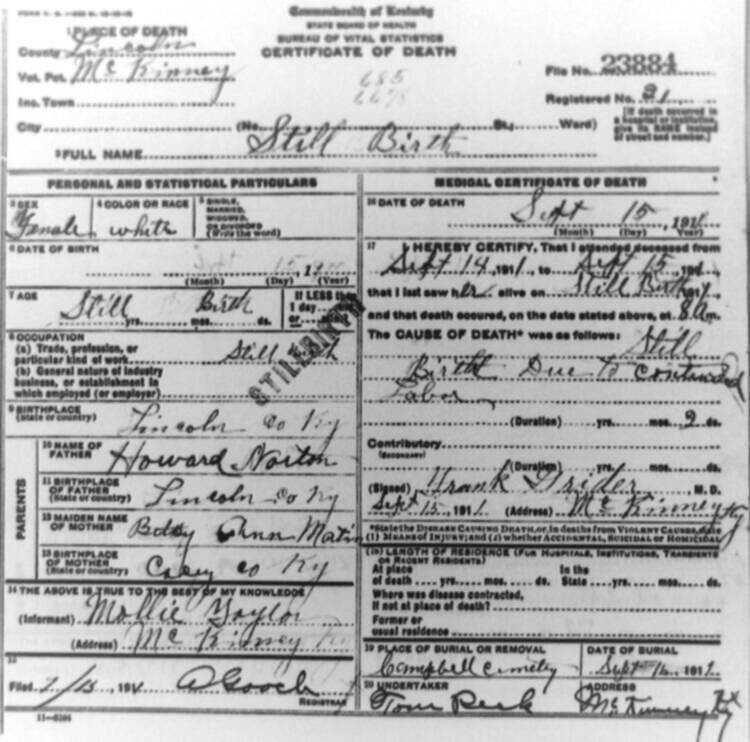 Commonwealth of Kentucky
STATE BOARD OF HEALTH
BUREAU OF VITAL STATISTICS
CERTIFICATE OF DEATH
1 PLACE OF DEATH
County Lincoln
Vot. Pct. McKinney
Inc. Town
City (No. St.; Ward)
685
File No. 23884
Registered No. 21
[If death occurred in a hospital or institution, give its NAME instead of street and number.]
2 FULL NAME Still Birth
PERSONAL AND STATISTICAL PARTICULARS
3 SEX Female
4 COLOR OR RACE white
5 SINGLE, MARRIED, WIDOWED, OR DIVORCED (Write the word)
6 DATE OF BIRTH
15
(Month) (Day) (Year)
7 AGE Still Birth
yrs. mos. ds.
If LESS than 1 day
or
8 OCCUPATION
(a) Trade, profession, or particular kind of work Still
(b) General nature of industry business, or establishment in which employed (or employer)
STILLBIRTH
9 BIRTHPLACE (State or country) Lincoln Co Ky
PARENTS
10 NAME OF FATHER Howard Norton
11 BIRTHPLACE OF FATHER (State or country) Lincoln Co Ky
12 MAIDEN NAME OF MOTHER Betsy Ann Matin
13 BIRTHPLACE OF MOTHER (State or country) Casey Co Ky
14 THE ABOVE IS TRUE TO THE BEST OF MY KNOWLEDGE
(Informant) Mollie Taylor
(Address) McKinney Ky
15
Filed 9/15 1911 A Gooch
REGISTRAR
11-6184
MEDICAL CERTIFICATE OF DEATH
16 DATE OF DEATH
Sept 15, 1911
(Month) (Day) (Year)
17 I HEREBY CERTIFY, That I attended deceased from
Sept 14 1911, to Sept 15 191
that I last saw her alive on Still Birth 191
and that death occured, on the date stated above, at 8 a m.
The CAUSE OF DEATH* was as follows:
Still
Birth Due to continued
Labor
(Duration) yrs. mos. 2 ds.
Contributory (SECONDARY)
(Duration) yrs. mos. ds.
(Signed) Frank Grider M. D.
Sept 15, 1911 (Address) McKinney Ky
*State the DISEASE CAUSING DEATH, or, in deaths from VIOLENT CAUSES, state
(1) MEANS OF INJURY; and (2) whether ACCIDENTAL, SUICIDAL or HOMICIDAL
(18) LENGTH OF RESIDENCE (FOR HOSPITALS, INSTITUTIONS, TRANSIENTS OR RECENT RESIDENTS)
At place of death yrs. mos. ds. In the State yrs. mos. ds.
Where was disease contracted,
if not at place of death?
Former or
usual residence
19 PLACE OF BURIAL OR REMOVAL
Campbell Cemetery
DATE OF BURIAL
Sept 16 1911
20 UNDERTAKER
Tom Peck
ADDRESS
McKinney Ky